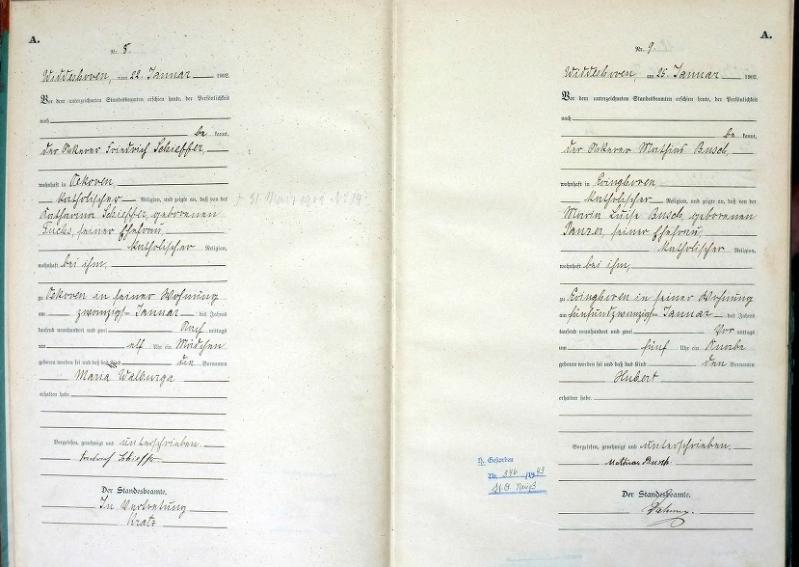 A.
Nr. 8.
Widdeshoven, am 22. Januar 1902.
Vor dem unterzeichneten Standesbeamten erschien heute, der Persönlichkeit
nach
be kannt,
der Ackerer Friedrich Schieffer,
wohnhaft in Oekoven,
katholischer Religion, und zeigte an, daß von der
Katharina Schieffer, geborenen
Fuchs, seiner Ehefrau,
katholischer Religion,
wohnhaft bei ihm,
zu Oekoven in seiner Wohnung
am zwanzigsten Januar des Jahres
tausend neunhundert und zwei Nach mittags
um elf Uhr ein Mädchen
geboren worden sei und daß das Kind die Vornamen
Maria Walburga
erhalten habe.
Vorgelesen, genehmigt und unterschrieben.
Friedrich Schieffer
Der Standesbeamte.
In Vertretung
Kratz
A.
Nr. 9.
Widdeshoven am 25. Januar 1902.
Vor dem unterzeichneten Standesbeamten erschien heute, der Persönlichkeit
nach
be kannt,
der Ackerer Mathias Busch,
wohnhaft in
katholischer Religion, und zeigte an, daß von der
Maria Luise Busch, geborenen
Panzer, seiner Ehefrau,
katholischer Religion,
wohnhaft bei ihm,
zu in seiner Wohnung
am fünfundzwanzigsten Januar des Jahres
tausend neunhundert und zwei Vor mittags
um fünf Uhr ein Knabe
geboren worden sei und daß das Kind den Vornamen
Hubert
erhalten habe.
Vorgelesen, genehmigt und unterschrieben.
Mathias Busch
Gestorben
Nr. 19
St. A. Neuß
Der Standesbeamte.